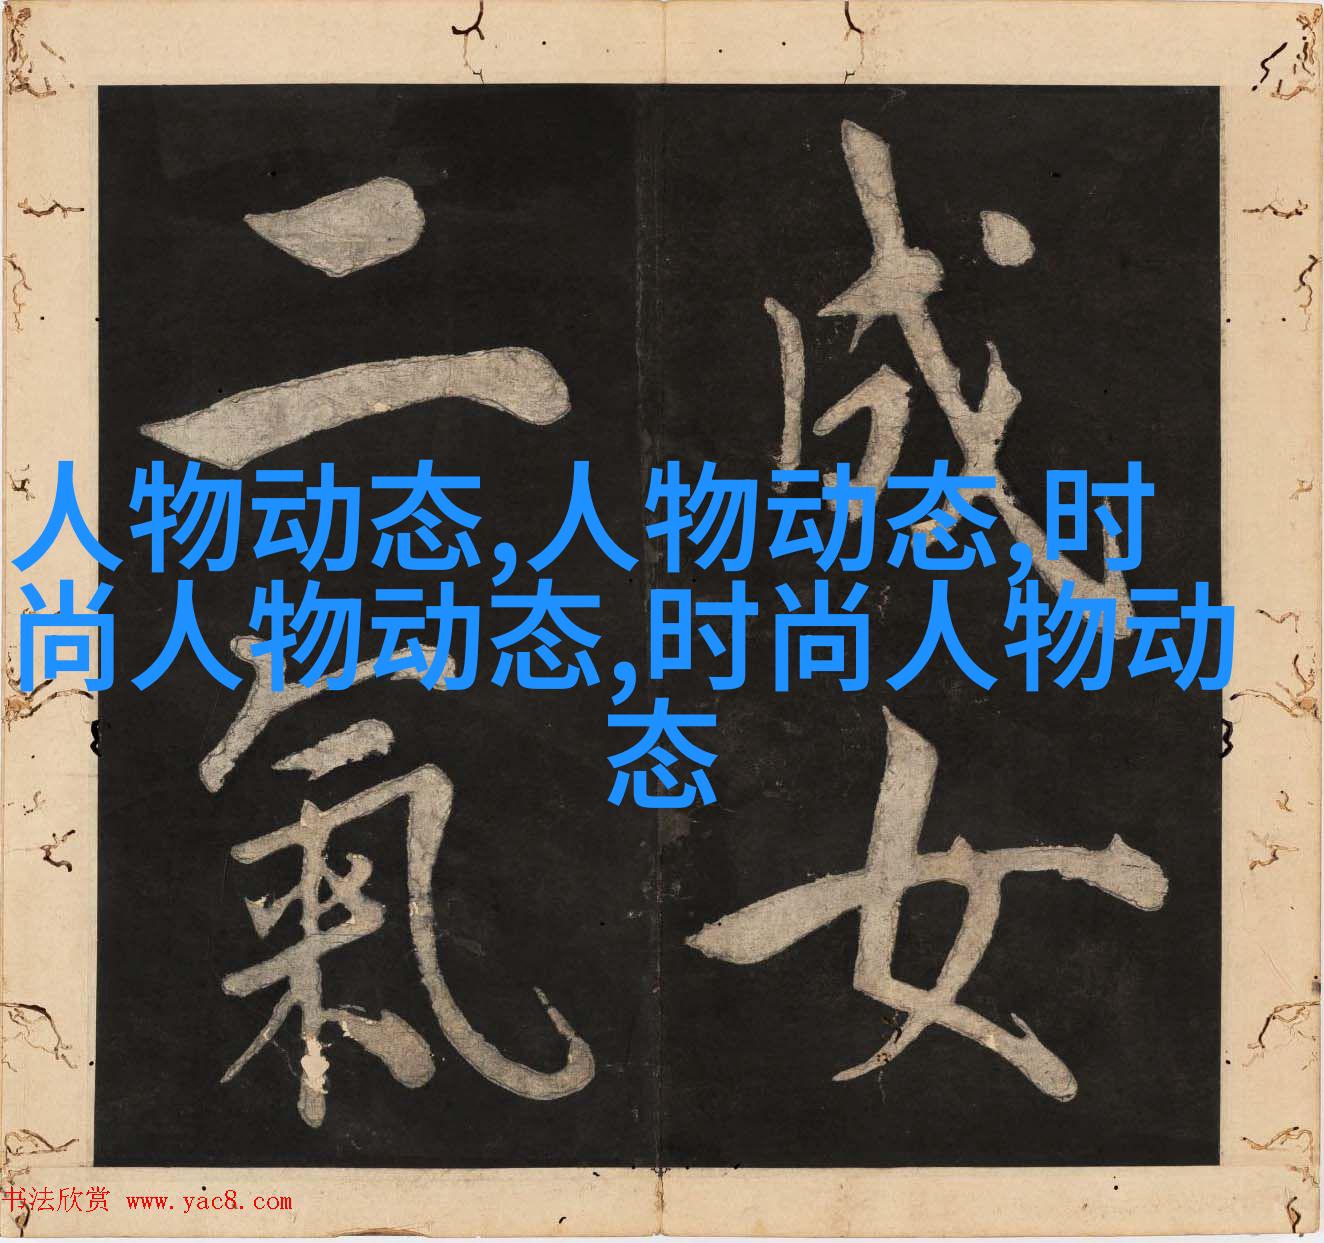 成女
二氣
人物动态,人物动态,时
尚人物动态,时尚人物动
态
书法欣赏 www.yac8.com